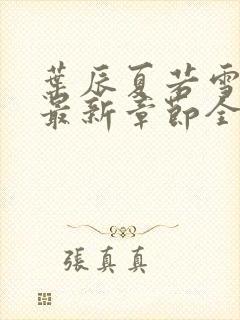 葉辰夏若雪
最新章節全
張真真